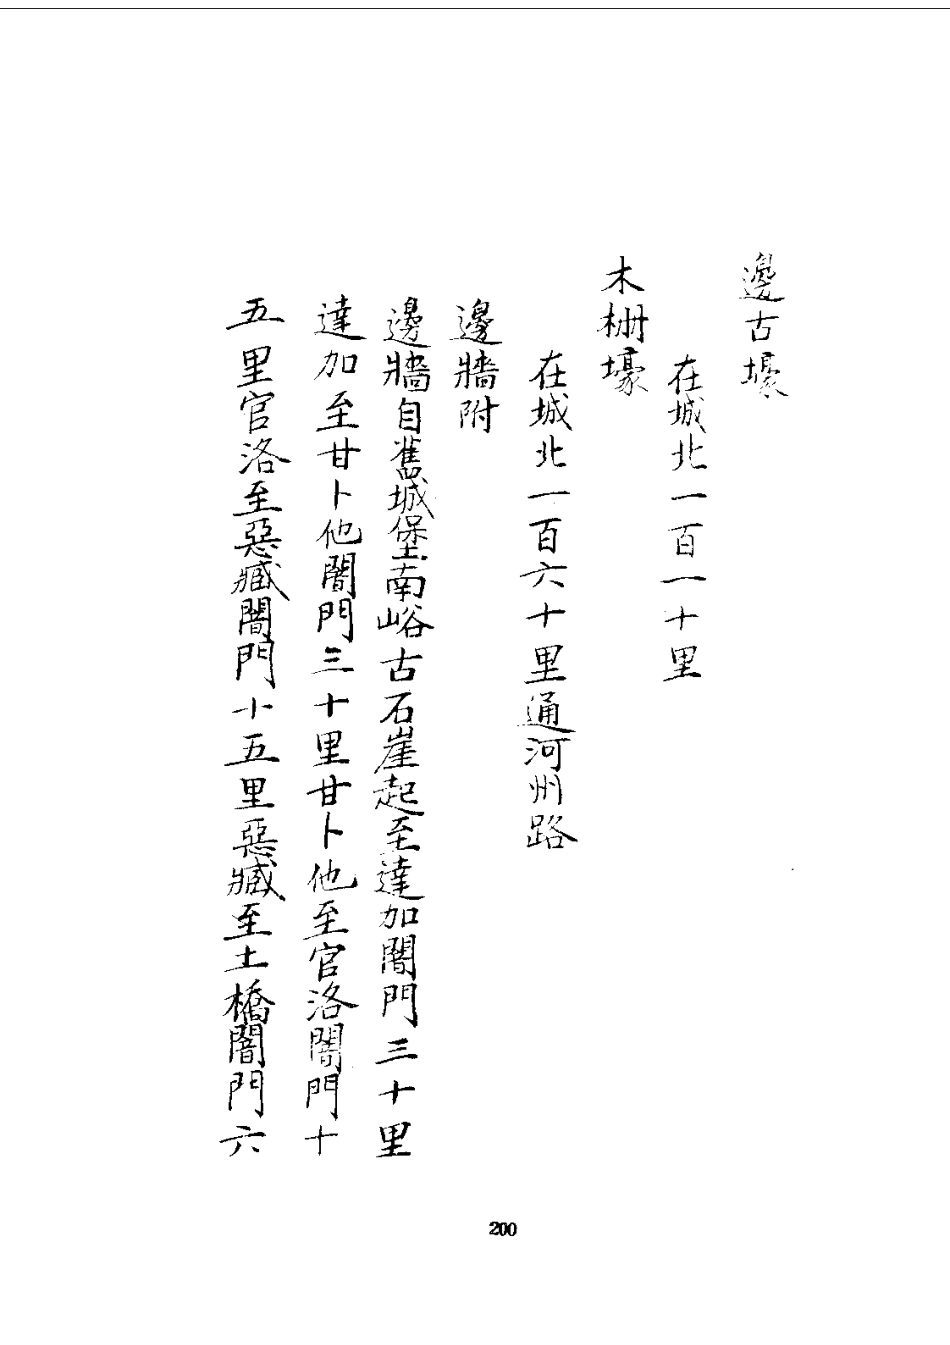 邊古壕
在城北一百一十里
木栅壕
在城北一百六十里通河州路
邊牆附
邊牆自舊城堡南峪古石崖起至達加闇門三十里
達加至甘卜他闇門三十里甘卜他至官洛闇門十
五里官洛至惡臧闇門十五里惡臧至土橋闇門六
200